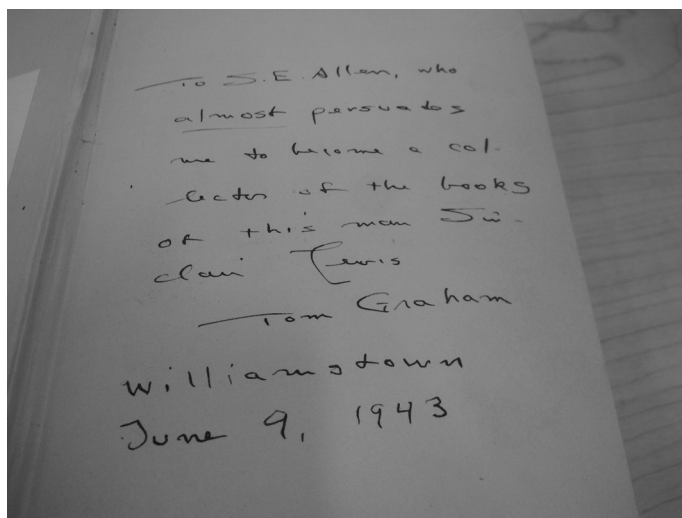 To S.E. Allen, who
almost persuades
me to become a col-
lector of the books
of this man Sin-
clair Lewis
Tom Graham
Williamstown
June 9, 1943